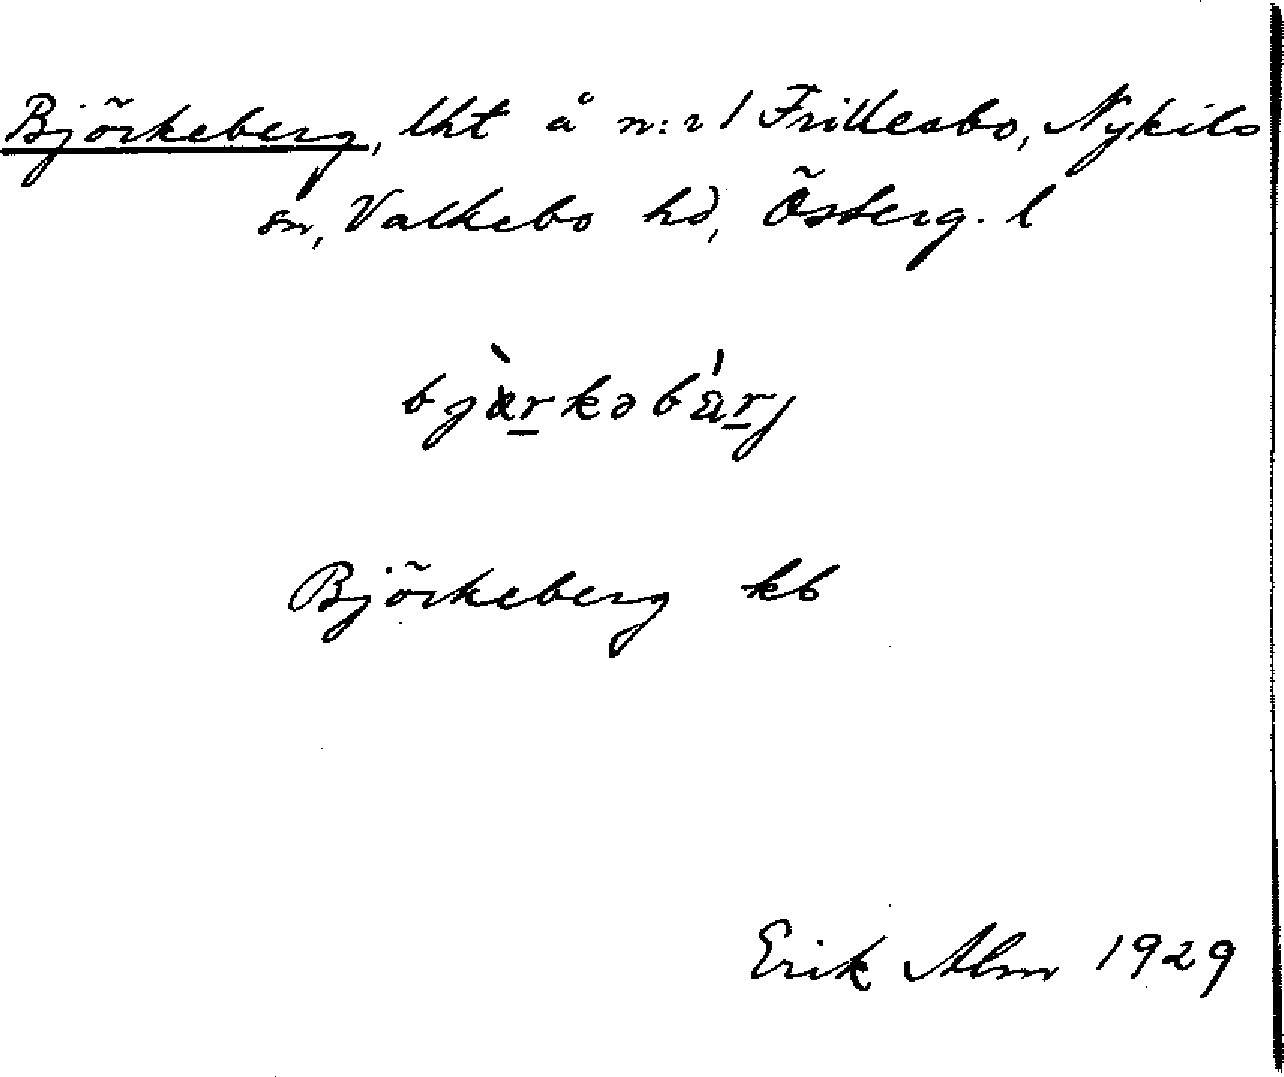 Björkeberg, lht å n:r 1 Frillesbo, Nykils
sn, Valkebo hd, Österg. l
bjærkəbærj
Björkeberg kb
Erik Alm 1929